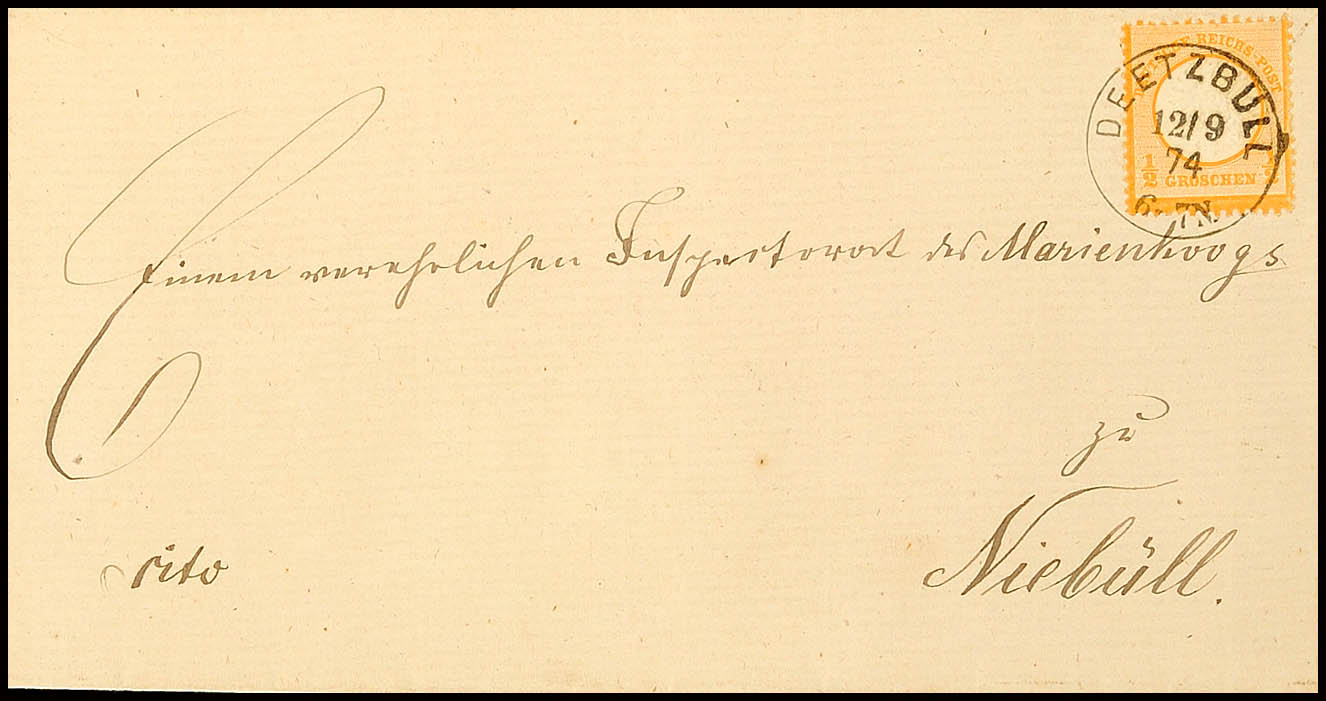 DEUTSCHE REICHS-POST
½ GROSCHEN ½
DEETZBÜLL
12/9
74
6-7N.
Einem verehrlichen Inspectorat des Marienkoogs
zu
Niebüll.
cito